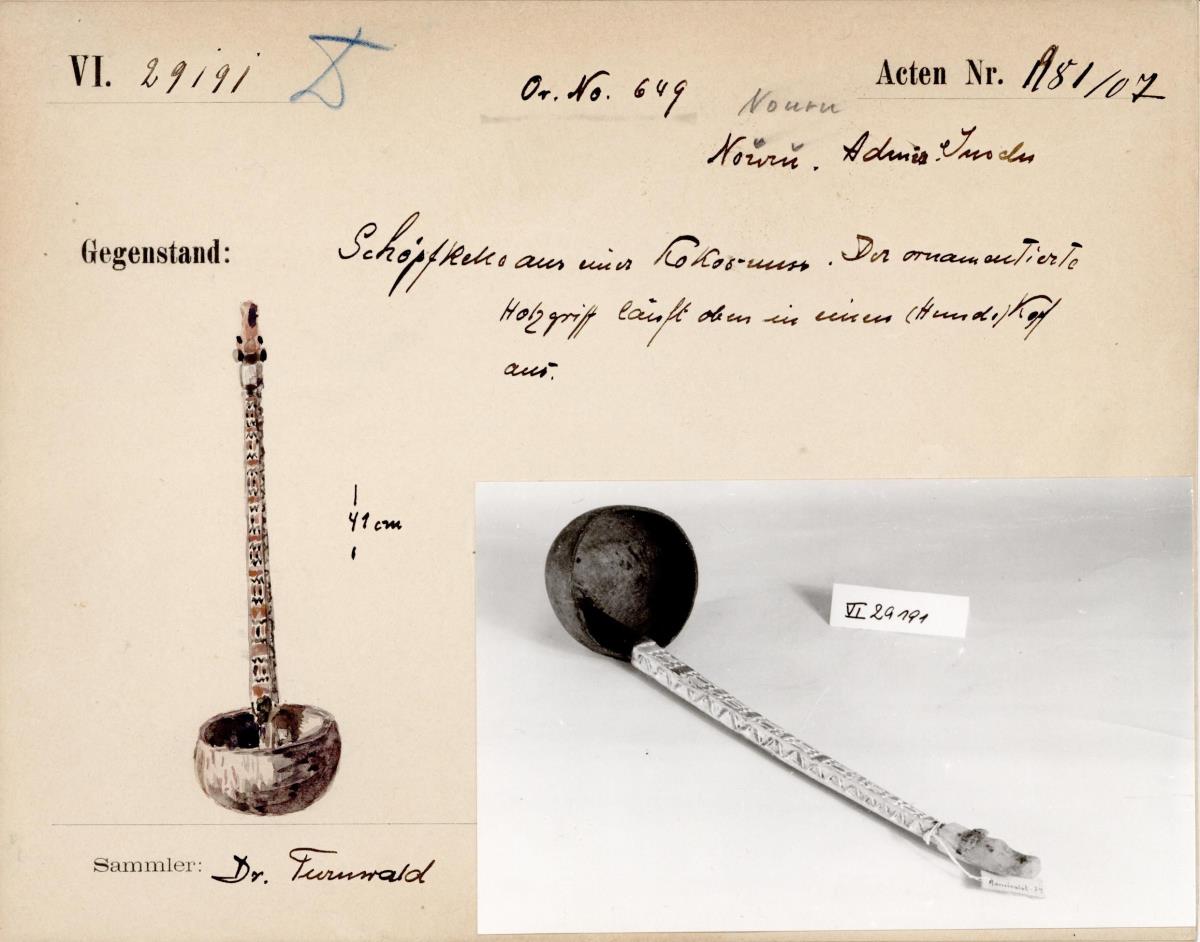 VI. 29191
Or. No. 649
Acten Nr. 981/07
Nouru
Noŭrŭ. Admir. Inseln
Gegenstand: Schöpfkelle aus einer Kokosnuss. Der ornamentierte
Holzgriff läuft oben in einen (Hunde)Kopf
aus.
41 cm
VI 29191
Sammler: Dr. Turnwald